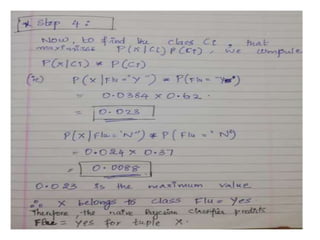 * Step 4 :
Now, to find the class Ci, that
maximises P(X/Ci) P(Ci), we compute
P(X/Ci) * P(Ci)
(ie) P(X/Flu="Y") * P(Flu="Y")
= 0.0384 x 0.62
= 0.023
P(X/Flu="N") * P(Flu="N")
= 0.024 x 0.37
= 0.0088
0.023 is the maximum value
∴ X belongs to class Flu = Yes
Therefore, the naive Bayesian classifier predicts
Flu = Yes for tuple X.